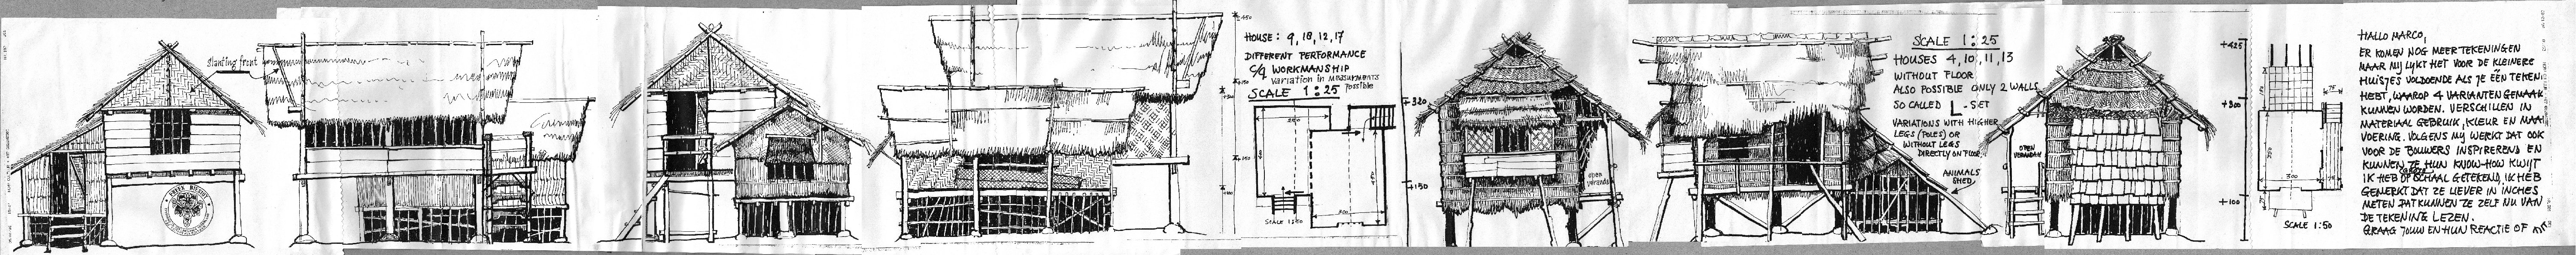 slanting front
HOUSE: 9, 18, 12, 17
DIFFERENT PERFORMANCE
C/Q WORKMANSHIP
Variation in measurments
possible
SCALE 1:25
+320
+150
SCALE 1:50
open
veranda
SCALE 1:25
HOUSES 4, 10, 11, 13
WITHOUT FLOOR
ALSO POSSIBLE ONLY 2 WALLS
SO CALLED L-SET
VARIATIONS WITH HIGHER
LEGS (POLES) OR
WITHOUT LEGS
DIRECTLY ON FLOOR
ANIMALS
SHED
OPEN
VERANDAH
+425
+300
+100
300
SCALE 1:50
HALLO MARCO,
ER KOMEN NOG MEER TEKENINGEN
MAAR MIJ LIJKT HET VOOR DE KLEINERE
HUISJES VOLDOENDE ALS JE EEN TEKEN.
HEBT, WAAROP 4 VARIANTEN GEMAAK
KUNNEN WORDEN. VERSCHILLEN IN
MATERIAAL GEBRUIK, KLEUR EN MAAT
VOERING. VOLGENS MIJ WERKT DAT OOK
VOOR DE BOUWERS INSPIREREND EN
KUNNEN ZE HUN KNOW-HOW KWIJT
IK HEB OP SCHAAL GETEKEND, IK HEB
GEMERKT DAT ZE LIEVER IN INCHES
METEN DAT KUNNEN ZE ZELF NU VAN
DE TEKENING LEZEN.
GRAAG JOUW EN HUN REACTIE OF